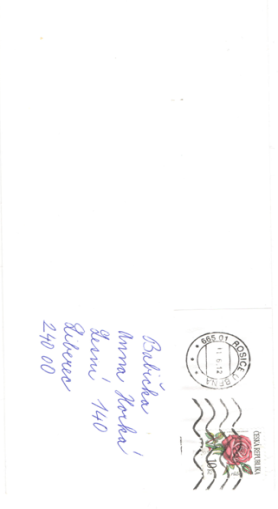 665 01 ROSICE U BRNA
11.6.12
ČESKÁ REPUBLIKA
10
Babička
Anna Horká
Lesní 140
Liberec
240 00